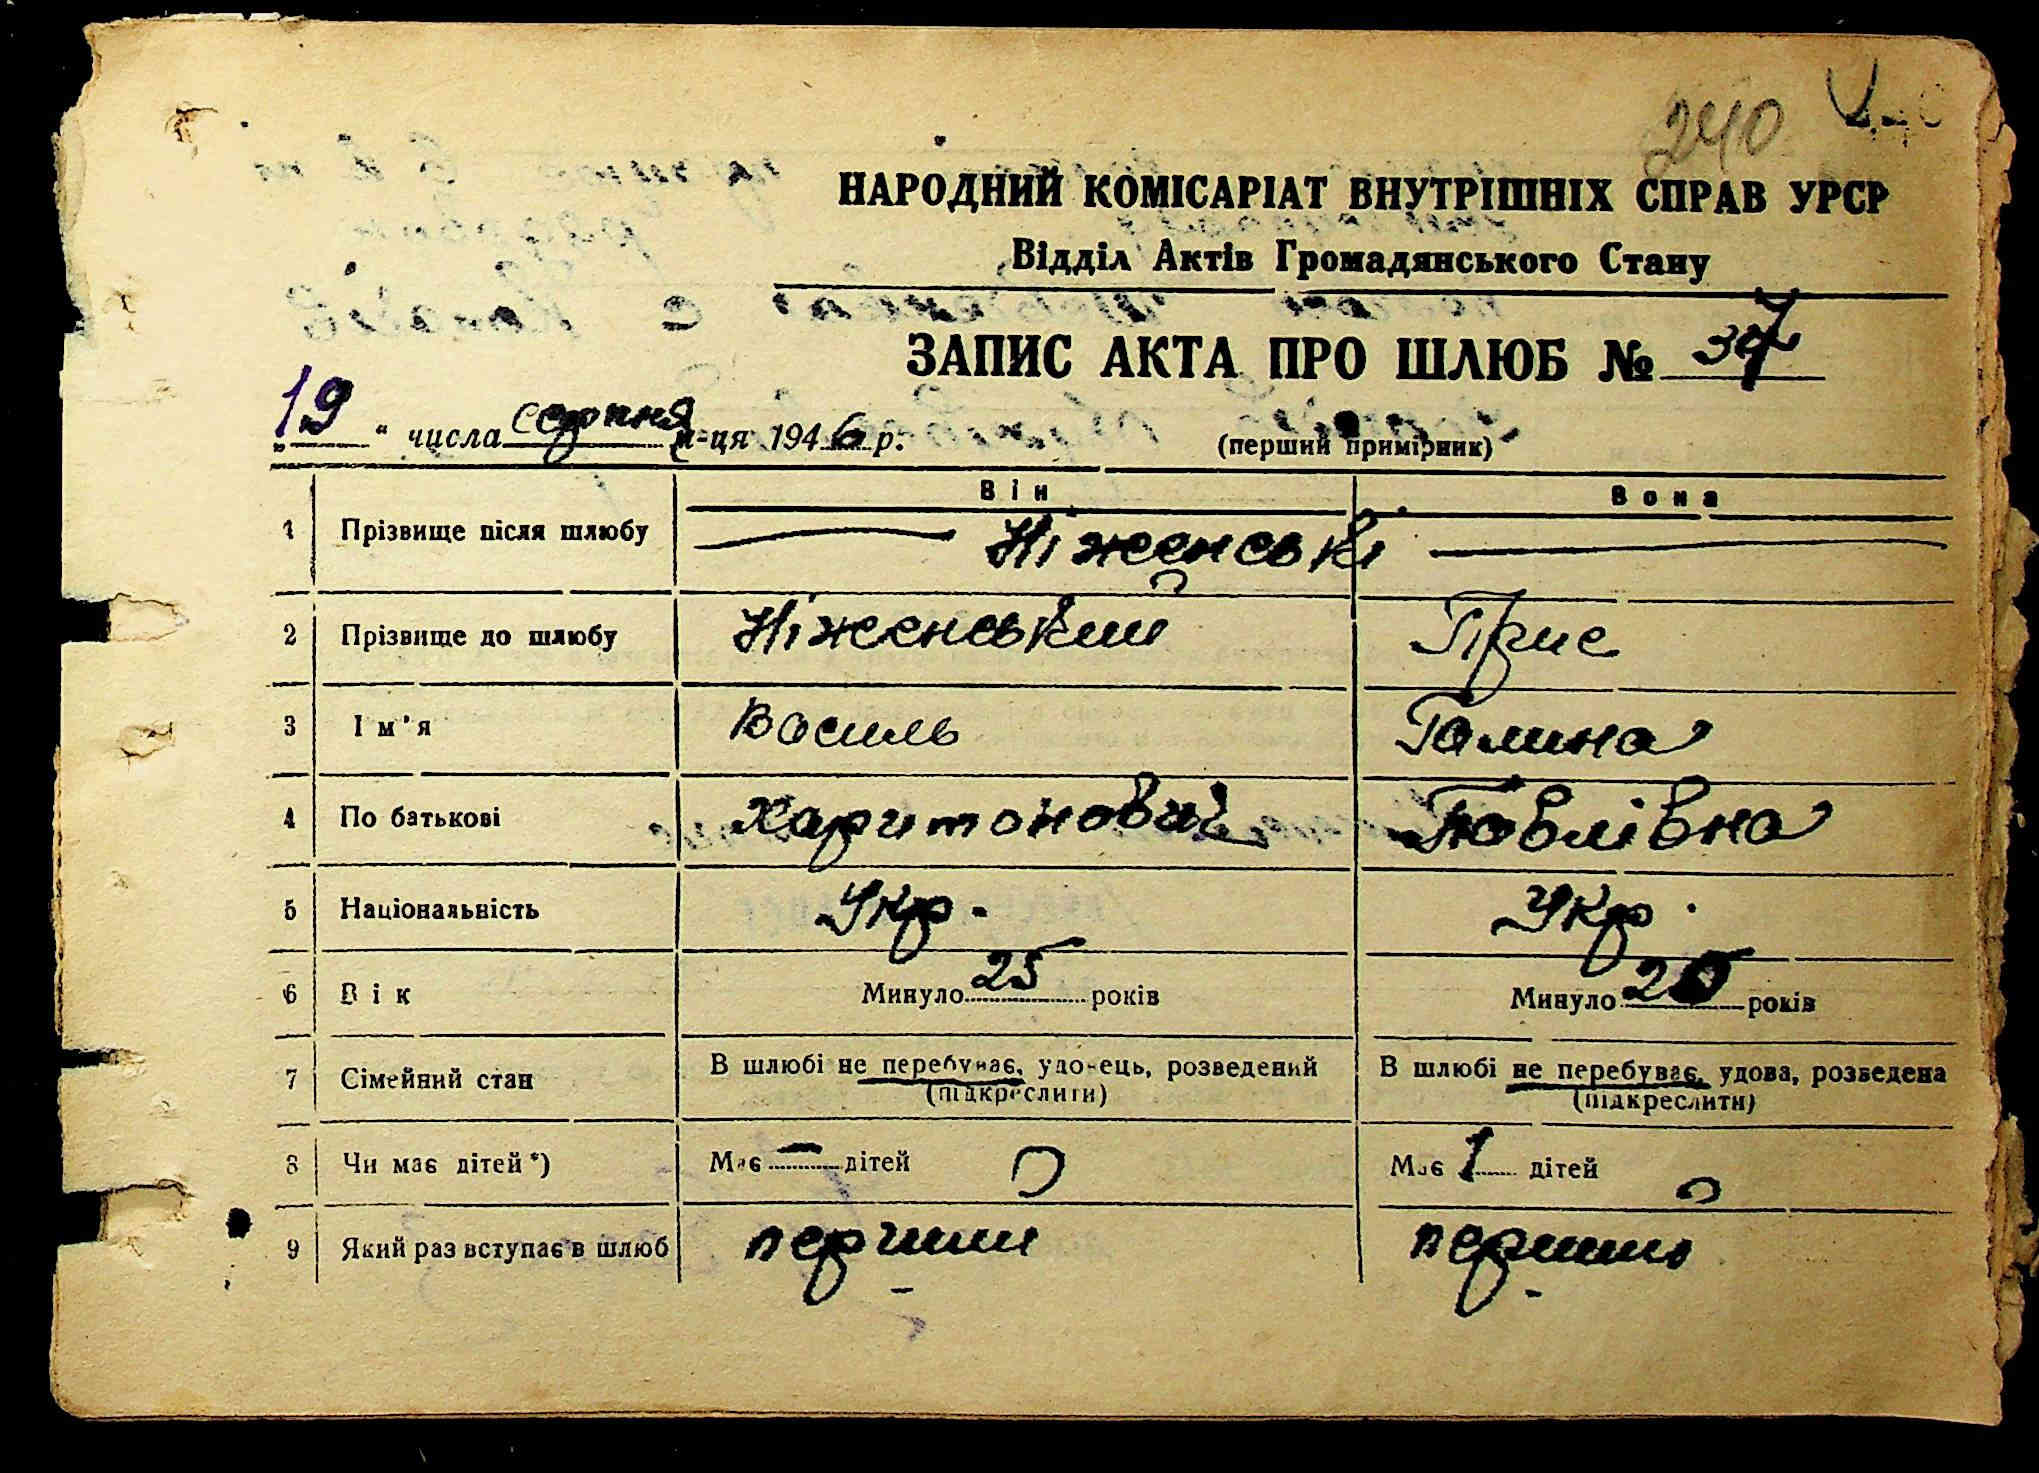 240
НАРОДНИЙ КОМІСАРІАТ ВНУТРІШНІХ СПРАВ УРСР
Відділ Актів Громадянського Стану
ЗАПИС АКТА ПРО ШЛЮБ №
„19“ числа серпня м-ця 1946 р.
(перший примірник)
Він Вона
1 Прізвище після шлюбу Ніженські
2 Прізвище до шлюбу Ніженський Прис
3 Ім'я Василь Галина
4 По батькові Харитонович Павлівна
5 Національність Укр. Укр.
6 Вік Минуло 25 років Минуло 20 років
7 Сімейний стан В шлюбі не перебуває, удовець, розведений В шлюбі не перебуває, удова, розведена
(підкреслити) (підкреслити)
8 Чи має дітей*) Має — дітей Має 1 дітей
9 Який раз вступає в шлюб перший перший